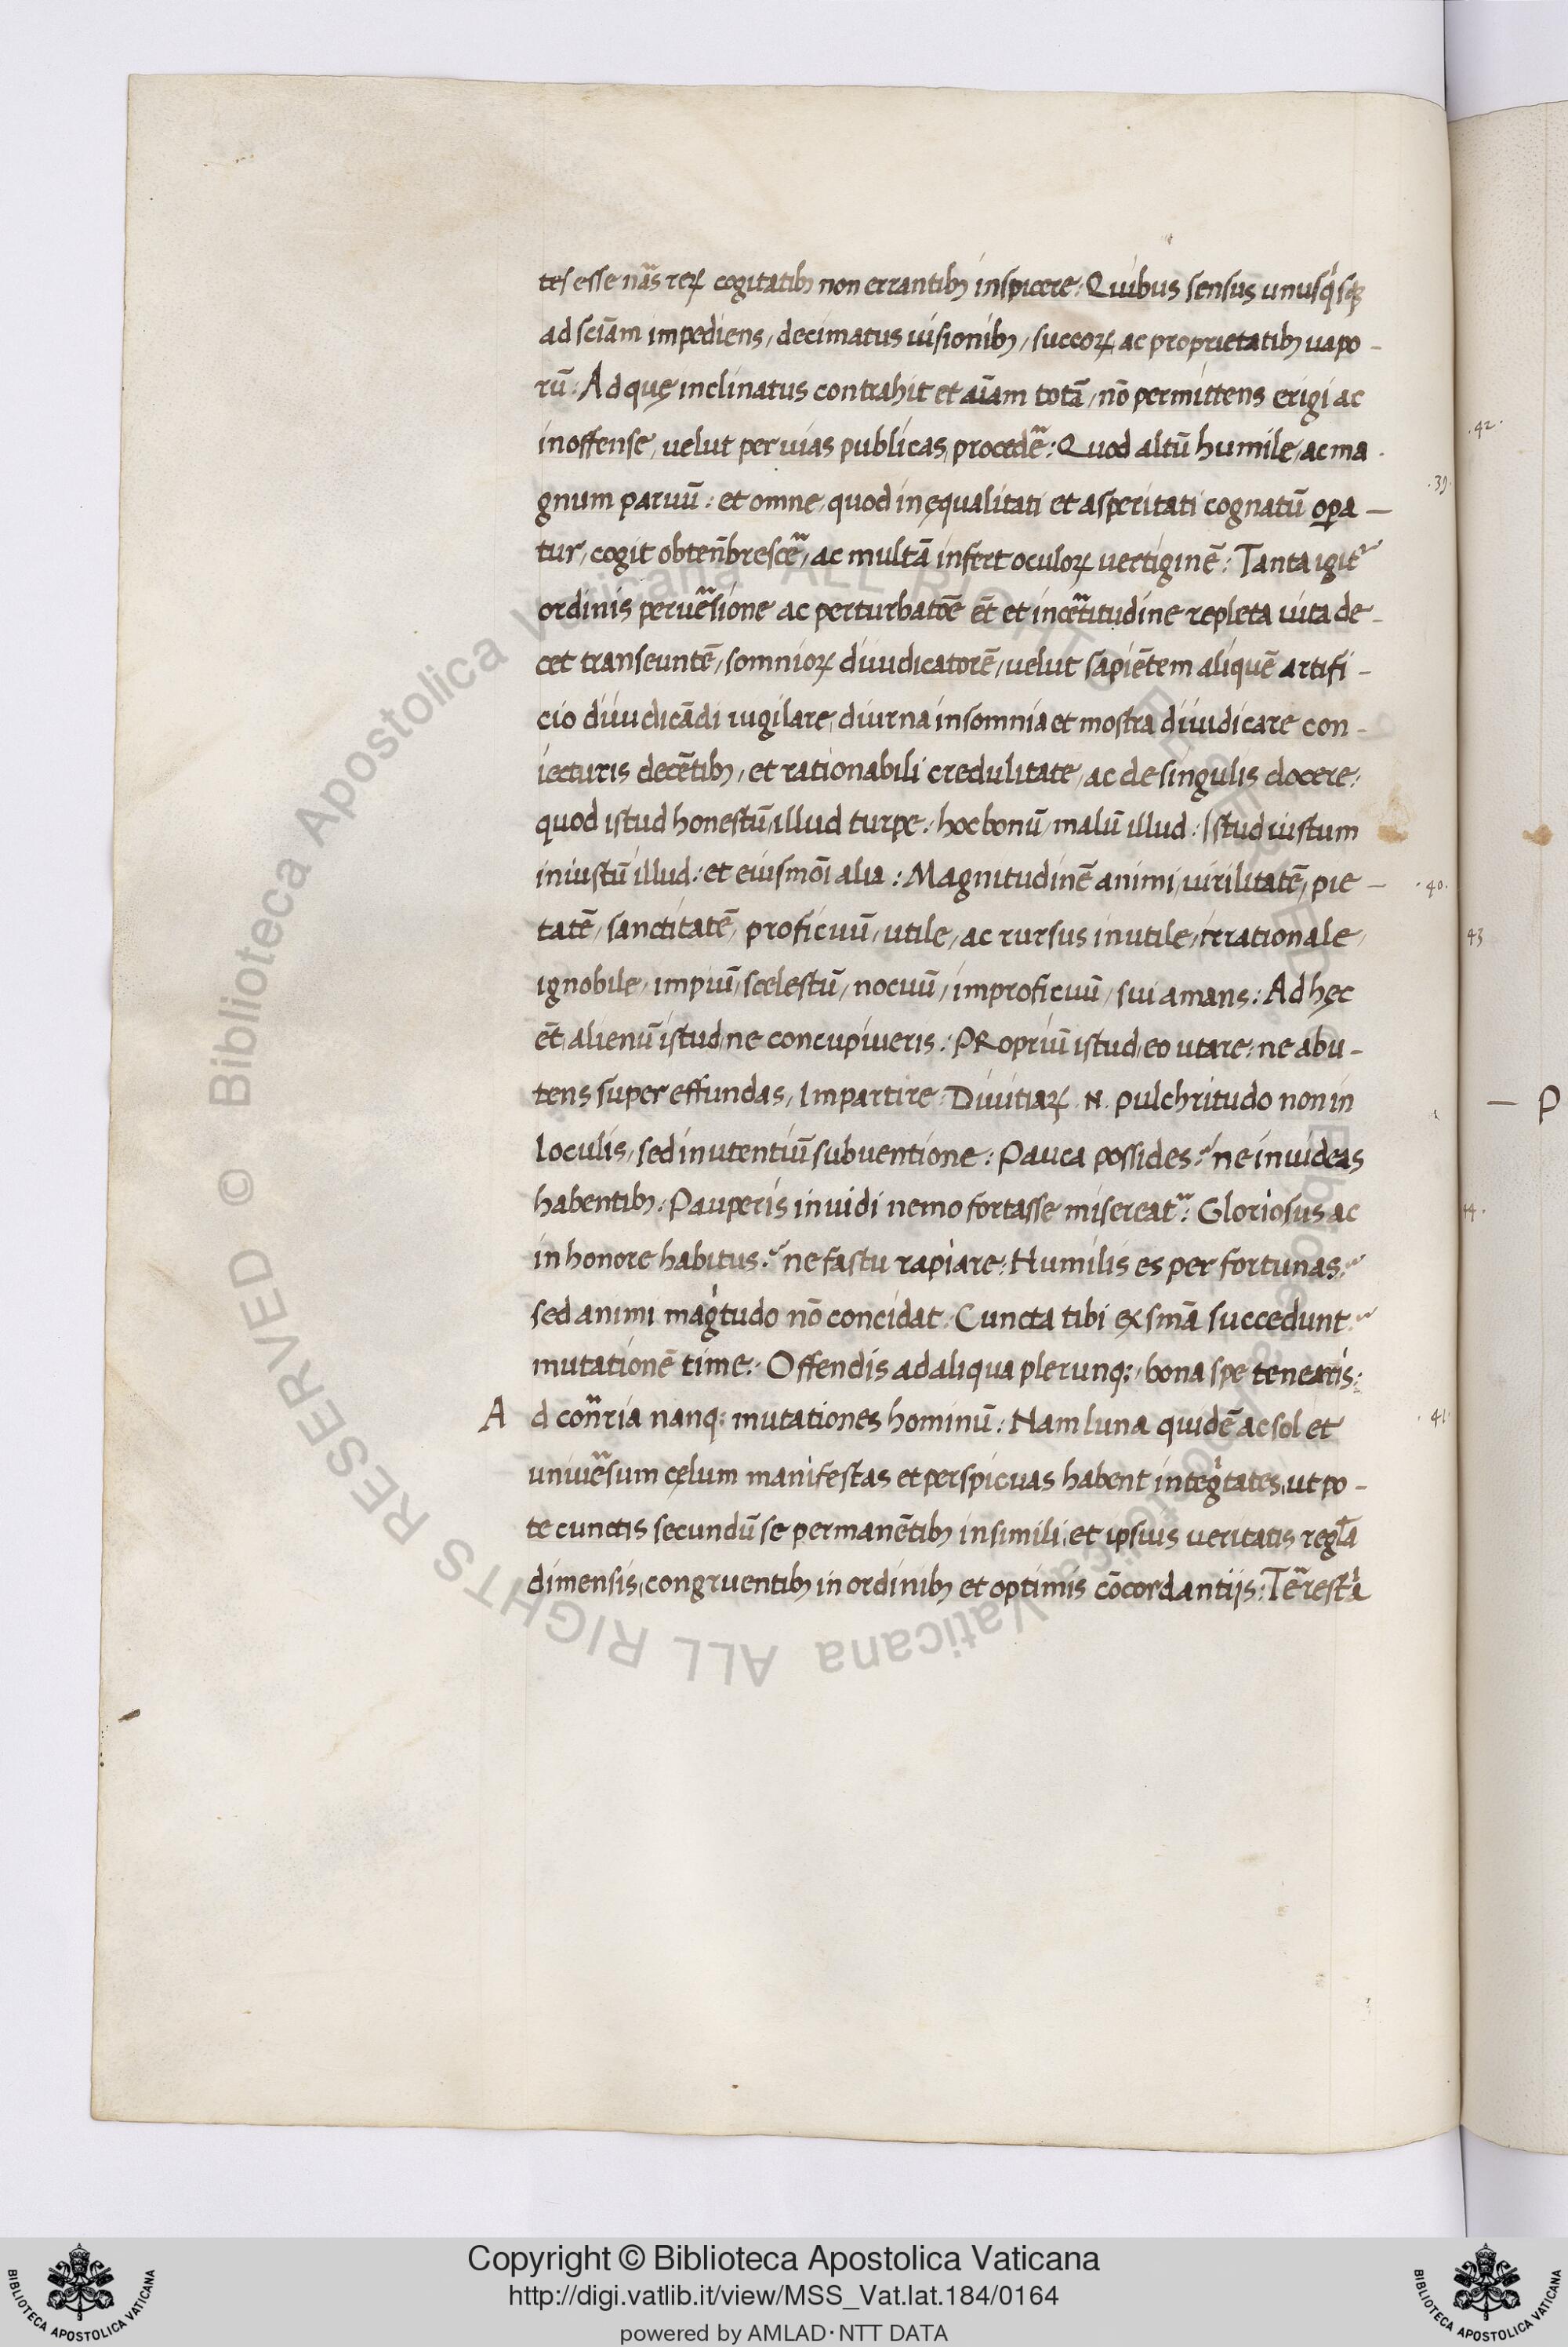 tes esse nãs reꝝ cogitatibꝫ non errantibꝫ inspicere: Quibus sensus unusqͥsqꝫ
ad sciãm impediens, decimatus uisionibꝫ, succoꝝ ac proprietatibꝫ uapo-
rũ: Ad quę inclinatus contrahit et aĩam totã, nõ permittens erigi ac
inoffense, velut per uias publicas, procedẽ: Quod altũ humile, ac ma
gnum paruũ: et omne, quod inęqualitati et asperitati cognatũ oꝑa-
tur, cogit obteñbrescẽ, ac multã infert oculoꝝ vertiginẽ: Tanta igit᷑
ordinis peruẽsione ac perturbatõe ẽt et incẽtitudine repleta uita de-
cet transeuntẽ, somnioꝝ diiudicatorẽ, velut sapiẽtem aliquẽ artifi-
cio diiudicãdi inuigilare, diurna insomnia et mostra diiudicare con-
iecturis decẽtibꝫ, et rationabili credulitate, ac de singulis docere:
quod istud honestũ, illud turpe: hoc bonũ, malũ illud: Istud iustum
iniustũ illud: et eiusmõi alia: Magnitudinẽ animi, uirilitatẽ, pie-
tatẽ, sanctitatẽ, proficuũ, utile, ac rursus inutile, irrationale,
ignobile, impiũ, scelestũ, nocuũ, improficuũ, sui amans: Ad hęc
ẽt, alienũ istud, ne concupiueris: PRopriũ istud, eo utare: ne abu-
tens super effundas, Impartire: Diuitiaꝝ .N. pulchritudo non in
loculis, sed in utentiũ subuentione: Pauca possides: ne inuideas
habentibꝫ: Pauperis inuidi nemo fortasse misereat᷑: Gloriosus ac
in honore habitus: ne fastu rapiare: Humilis es per fortunas:
sed animi magͥtudo nõ concidat: Cuncta tibi ex smã succedunt:
mutationẽ time: Offendis ad aliqua plerunqꝫ, bona spe tenearis:
Ad cõn᷑ria nanqꝫ mutationes hominũ: Nam luna quidẽ ac sol et
uniuẽsum cęlum manifestas et perspicuas habent integͥtates, ut po-
te cunctis secundũ se permanẽtibꝫ in simili, et ipsius veritatis regl̃a
dimensis, congruentibꝫ in ordinibꝫ et optimis cõcordantijs: Tẽrestͥa
.42.
.39.
.40.
43
44.
.41.
— P
Copyright © Biblioteca Apostolica Vaticana
http://digi.vatlib.it/view/MSS_Vat.lat.184/0164
powered by AMLAD·NTT DATA
BIBLIOTECA APOSTOLICA VATICANA
BIBLIOTECA APOSTOLICA VATICANA
© Biblioteca Apostolica Vaticana ALL RIGHTS RESERVED
© Biblioteca Apostolica Vaticana ALL RIGHTS RESERVED